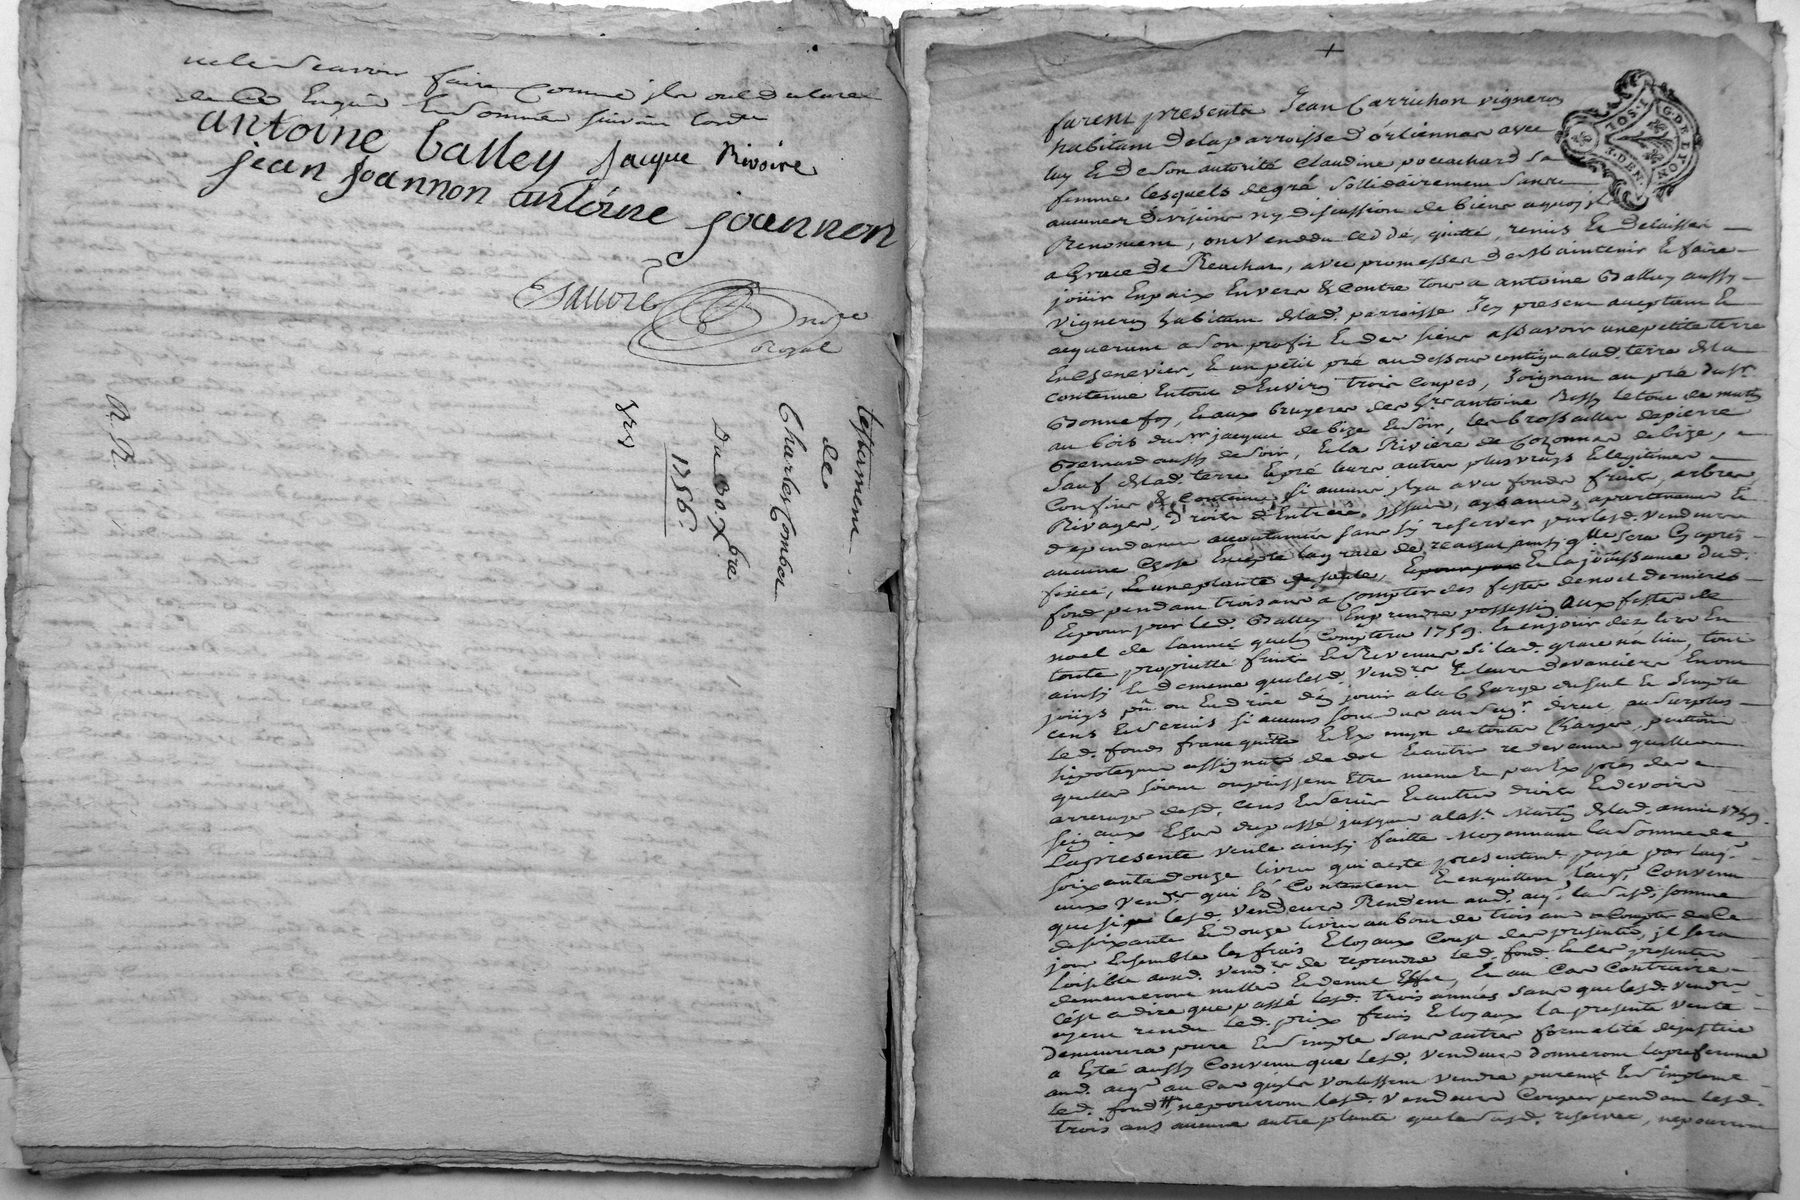 faire comme
de ce Enquis Et sommés suivant
antoine balley Jacque Rivoire
jean joannon antoine joannon
Sauvore
nore
royal
testament
de
Charles Combe
Du 30. Xbre
1756.
R. R.
G. DE LYON
furent presents Jean Carrichon vigneron
habitant de la parroisse d'orliennas avec
luy Et de son autorité Claudine pouchard sa
femme lesquels de gré sollidairement sans
aucunes divisions ny discussion de biens a quoy ils
Renoncent, ont vendu ceddé, quitté, remis Et delaissé
a Grace de Reachat, avec promesses de Maintenir Et faire
joüir En paix Envers Et contre tous a antoine Balley aussy
vigneron habitant de lad. parroisse Icy present acceptant Et
acquerant a son profit Et des siens assavoir une petite terre
Et un petit pré au dessous contigu a lad. terre de la
contenue En tout d'Environ trois Coupes, Joignant au pré du Sr.
Bonnefoy, Et aux bruyeres des antoine
au bois du Sr. jacque de bize Et soir, les brossailles de pierre
Bernard aussy de soir, Et la Riviere de de bize,
Sauf de lad. terre Et pré leurs autres plus vrays Et legitimes
Confins Et Contenue si aucuns il y a avec fonds fruits, arbres
Rivages, Droits d'Entrées, Issües, aysances, apartenances Et
dependances accoutumées sans s'y reserver par lesd. vendeurs
aucune chose Excepté la grace de reachat ainsy qlle sera Cy apres
fixée, Et une plante de Et la joüissance dud.
fond pendant trois ans a Compter des festes de noel dernieres
Et pour par led. Balley En prendre possession aux festes de
noel de l'année qu'on Comptera 1759. Et en joüir des lors En
toute proprietté fruits Et Revenus si lad. grace n'a lieu, tout
ainsy Et de meme que lesd. vendrs. Et leurs devanciers En ont
joüys pû ou Eu droit d'en joüir a la Charge du seul Et simple
cens Et servis si aucuns sont dus au seigr. direct, au surplus
led. fonds franc quitte Et Exempt de toutes Charges, pentions
hipoteques assignats de dot Et autres redevances quelles
quelles soient ou puissent Etre meme Et par Expres des
arrerages desd. cens Et servis Et autres droits Et devoirs
seigaux Echus du passé jusques a la St. Martin de lad. année 1759.
La presente vente ainsy faitte Moyennant la somme de
soixante douze livres qui a eté presentemt payée par l'aqr.
aux vendrs qui s'en Contentent Et en quittent l'aqr. Convenu
que si lesd. vendeurs Rendent aud. aqr. la susd. somme
de soixante Et douze livres au bout de trois ans a Compter de Ce
jour Ensemble les frais Et loyaux Cousts des presentes, il sera
loisible auxd. vendrs de reprendre led. fond. Et les presentes
demeureront nulles Et de nul Effet, Et au Cas Contraire
c'est a dire que passé lesd. trois années sans que lesd. vendrs
ayent rendu led. prix frais Et loyaux la presente vente
demeurera pure Et simple sans autres formalité de justice
a Eté aussy Convenu que lesd. vendeurs donneront la preferance
aud. aqr au Cas qu'ils voulussent vendre puremt Et simplemt
led. fond, ne pourront lesd. vendeurs Couper pendant lesd.
trois ans aucune autre plante que la susd. reservée, ne pourront